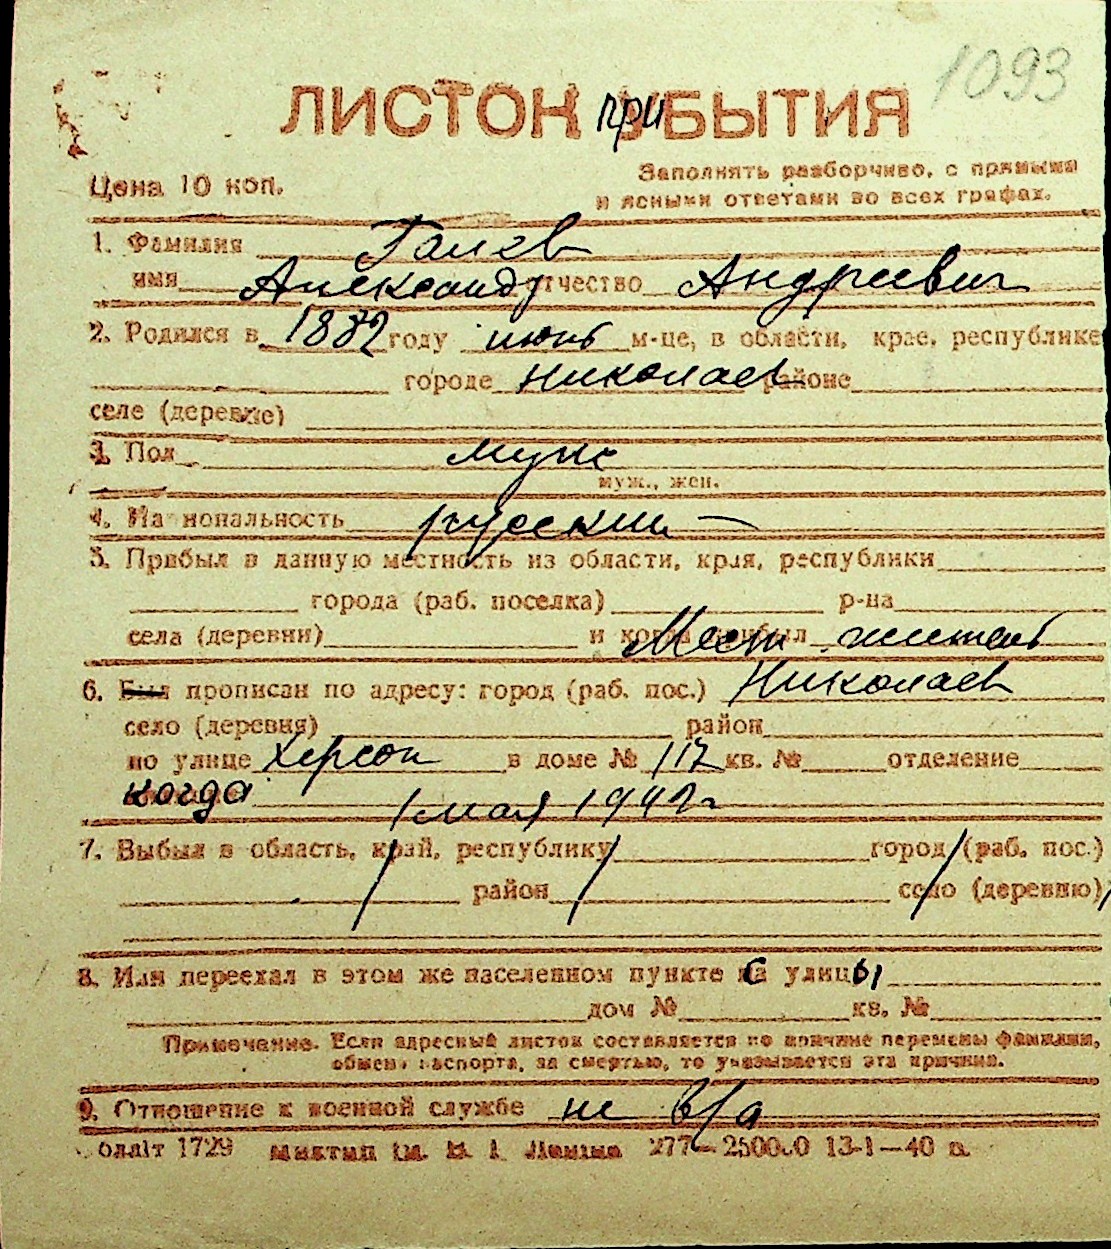 1093
ЛИСТОК прибЫТИЯ
Цена 10 коп.
Заполнять разборчиво, с прямыми
и ясными ответами во всех графах.
1. Фамилия Галев
имя Александр отчество Андреевич
2. Родился в 1882 году июнь м-це, в области, крае, республике
городе Николаев районе
селе (деревне)
3. Пол муж
муж., жен.
4. Национальность русский —
5. Прибыл в данную местность из области, края, республики
города (раб. поселка) р-на
села (деревни) и когда прибыл Мест. житель
6. Был прописан по адресу: город (раб. пос.) Николаев
село (деревня) район
по улице Херсон в доме № 117 кв. № отделение
когда 1 мая 1942 г
7. Выбыл в область, край, республику город (раб. пос.)
район село (деревню)
8. Или переехал в этом же населенном пункте с улицы
дом № кв. №
Примечание. Если адресный листок составляется по причине перемены фамилии,
обмена паспорта, за смертью, то указывается эта причина.
9. Отношение к военной службе не в/о
облліт 1729 им. В. І. Леніна 277—250000 13-1—40 в.